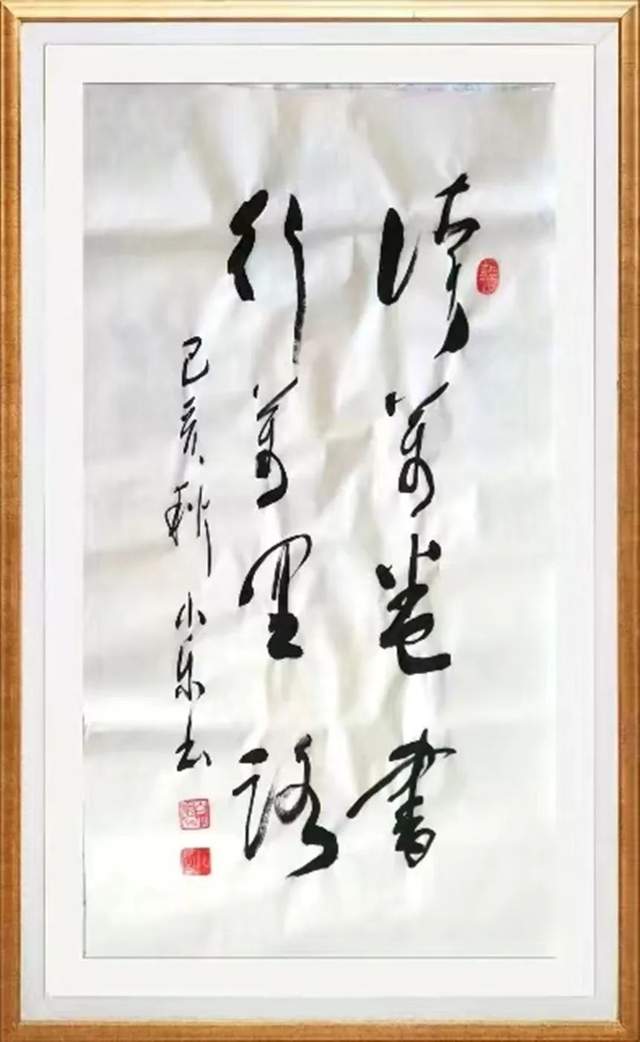 读万卷书
行万里路
己亥秋小乐书